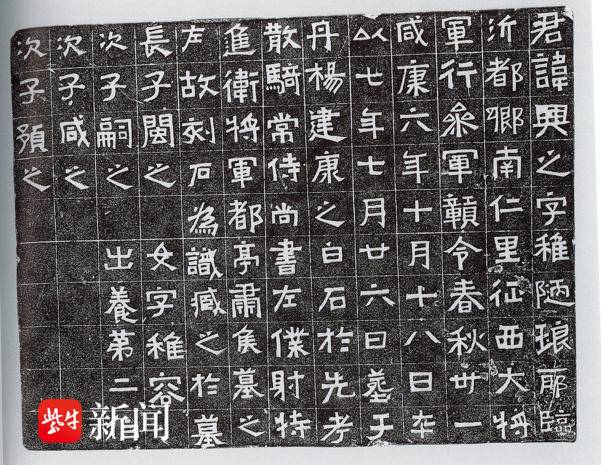 君諱興之字稚陋琅耶臨
沂都鄉南仁里征西大將
軍行參軍贛令春秋卅一
咸康六年十月十八日卒
以七年七月廿六日葬于
丹楊建康之白石於先考
散騎常侍尚書左僕射特
進衛將軍都亭肅侯墓之
左故刻石為識臧之於墓
長子閩之 女字稚容
次子嗣之 出養第二
次子咸之
次子預之
紫牛 新闻